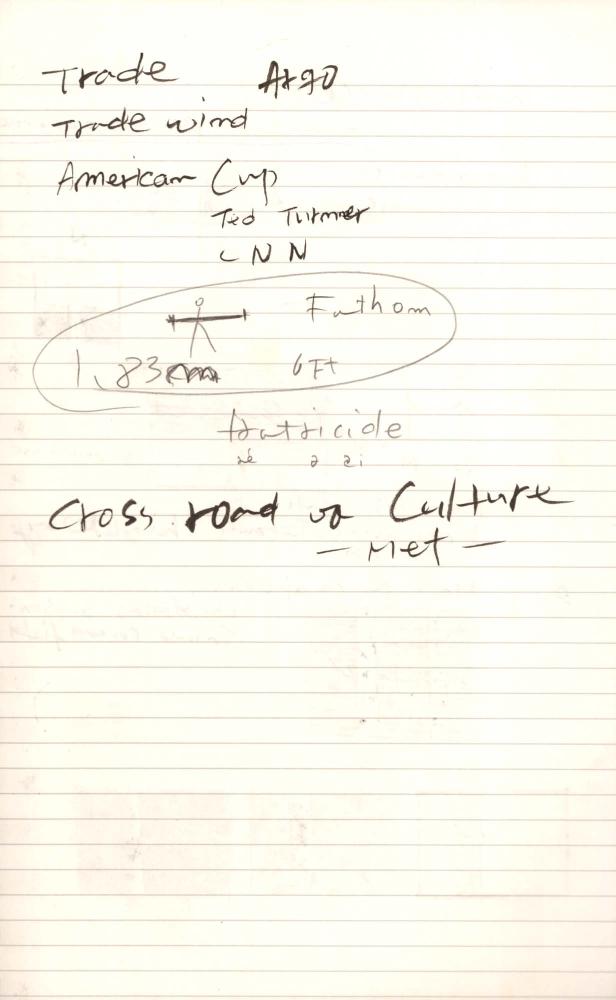 Trade Argo
Trade wind
American Cup
Ted Turner
CNN
Fathom
1.83m 6Ft
fratricide
æ ə ai
Cross road of Culture
- Met -